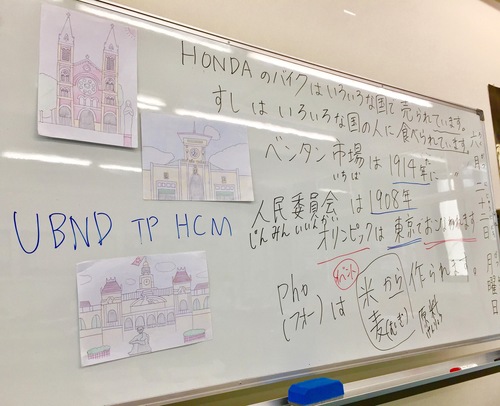 HONDAのバイクはいろいろな国で売られています。
すしはいろいろな国の人に食べられています。
ベンタン市場は1914年に 〃
いちば
人民委員会は1908年 〃
じんみんいいんかい
オリンピックは東京でおこなわれます
イベント
UBND TP HCM
phở
(フォー)は
米から
麦(むぎ)
作られ
。
原料
六月二十二日 月曜日